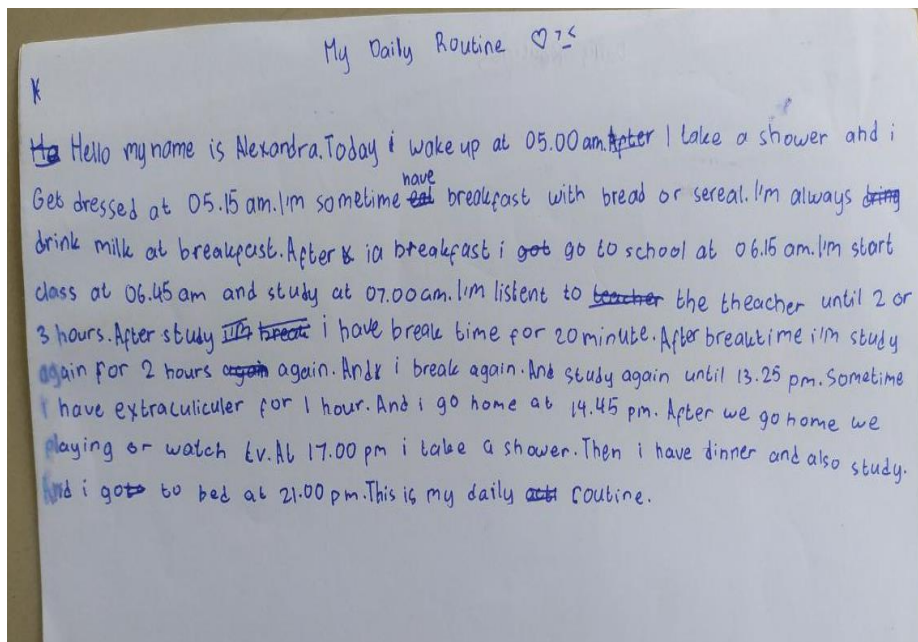 My Daily Routine ♡ >.<
Hello my name is Alexandra. Today i wake up at 05.00 am. I take a shower and i
Get dressed at 05.15 am. I'm sometime have breakfast with bread or sereal. I'm always
drink milk at breakfast. After breakfast i go to school at 06.15 am. I'm start
class at 06.45 am and study at 07.00 am. I'm listent to the theacher until 2 or
3 hours. After study i have break time for 20 minute. After breaktime i'm study
again for 2 hours again. And i break again. And study again until 13.25 pm. Sometime
I have extraculiculer for 1 hour. And i go home at 14.45 pm. After we go home we
playing or watch tv. At 17.00 pm i take a shower. Then i have dinner and also study.
And i go to bed at 21.00 pm. This is my daily routine.